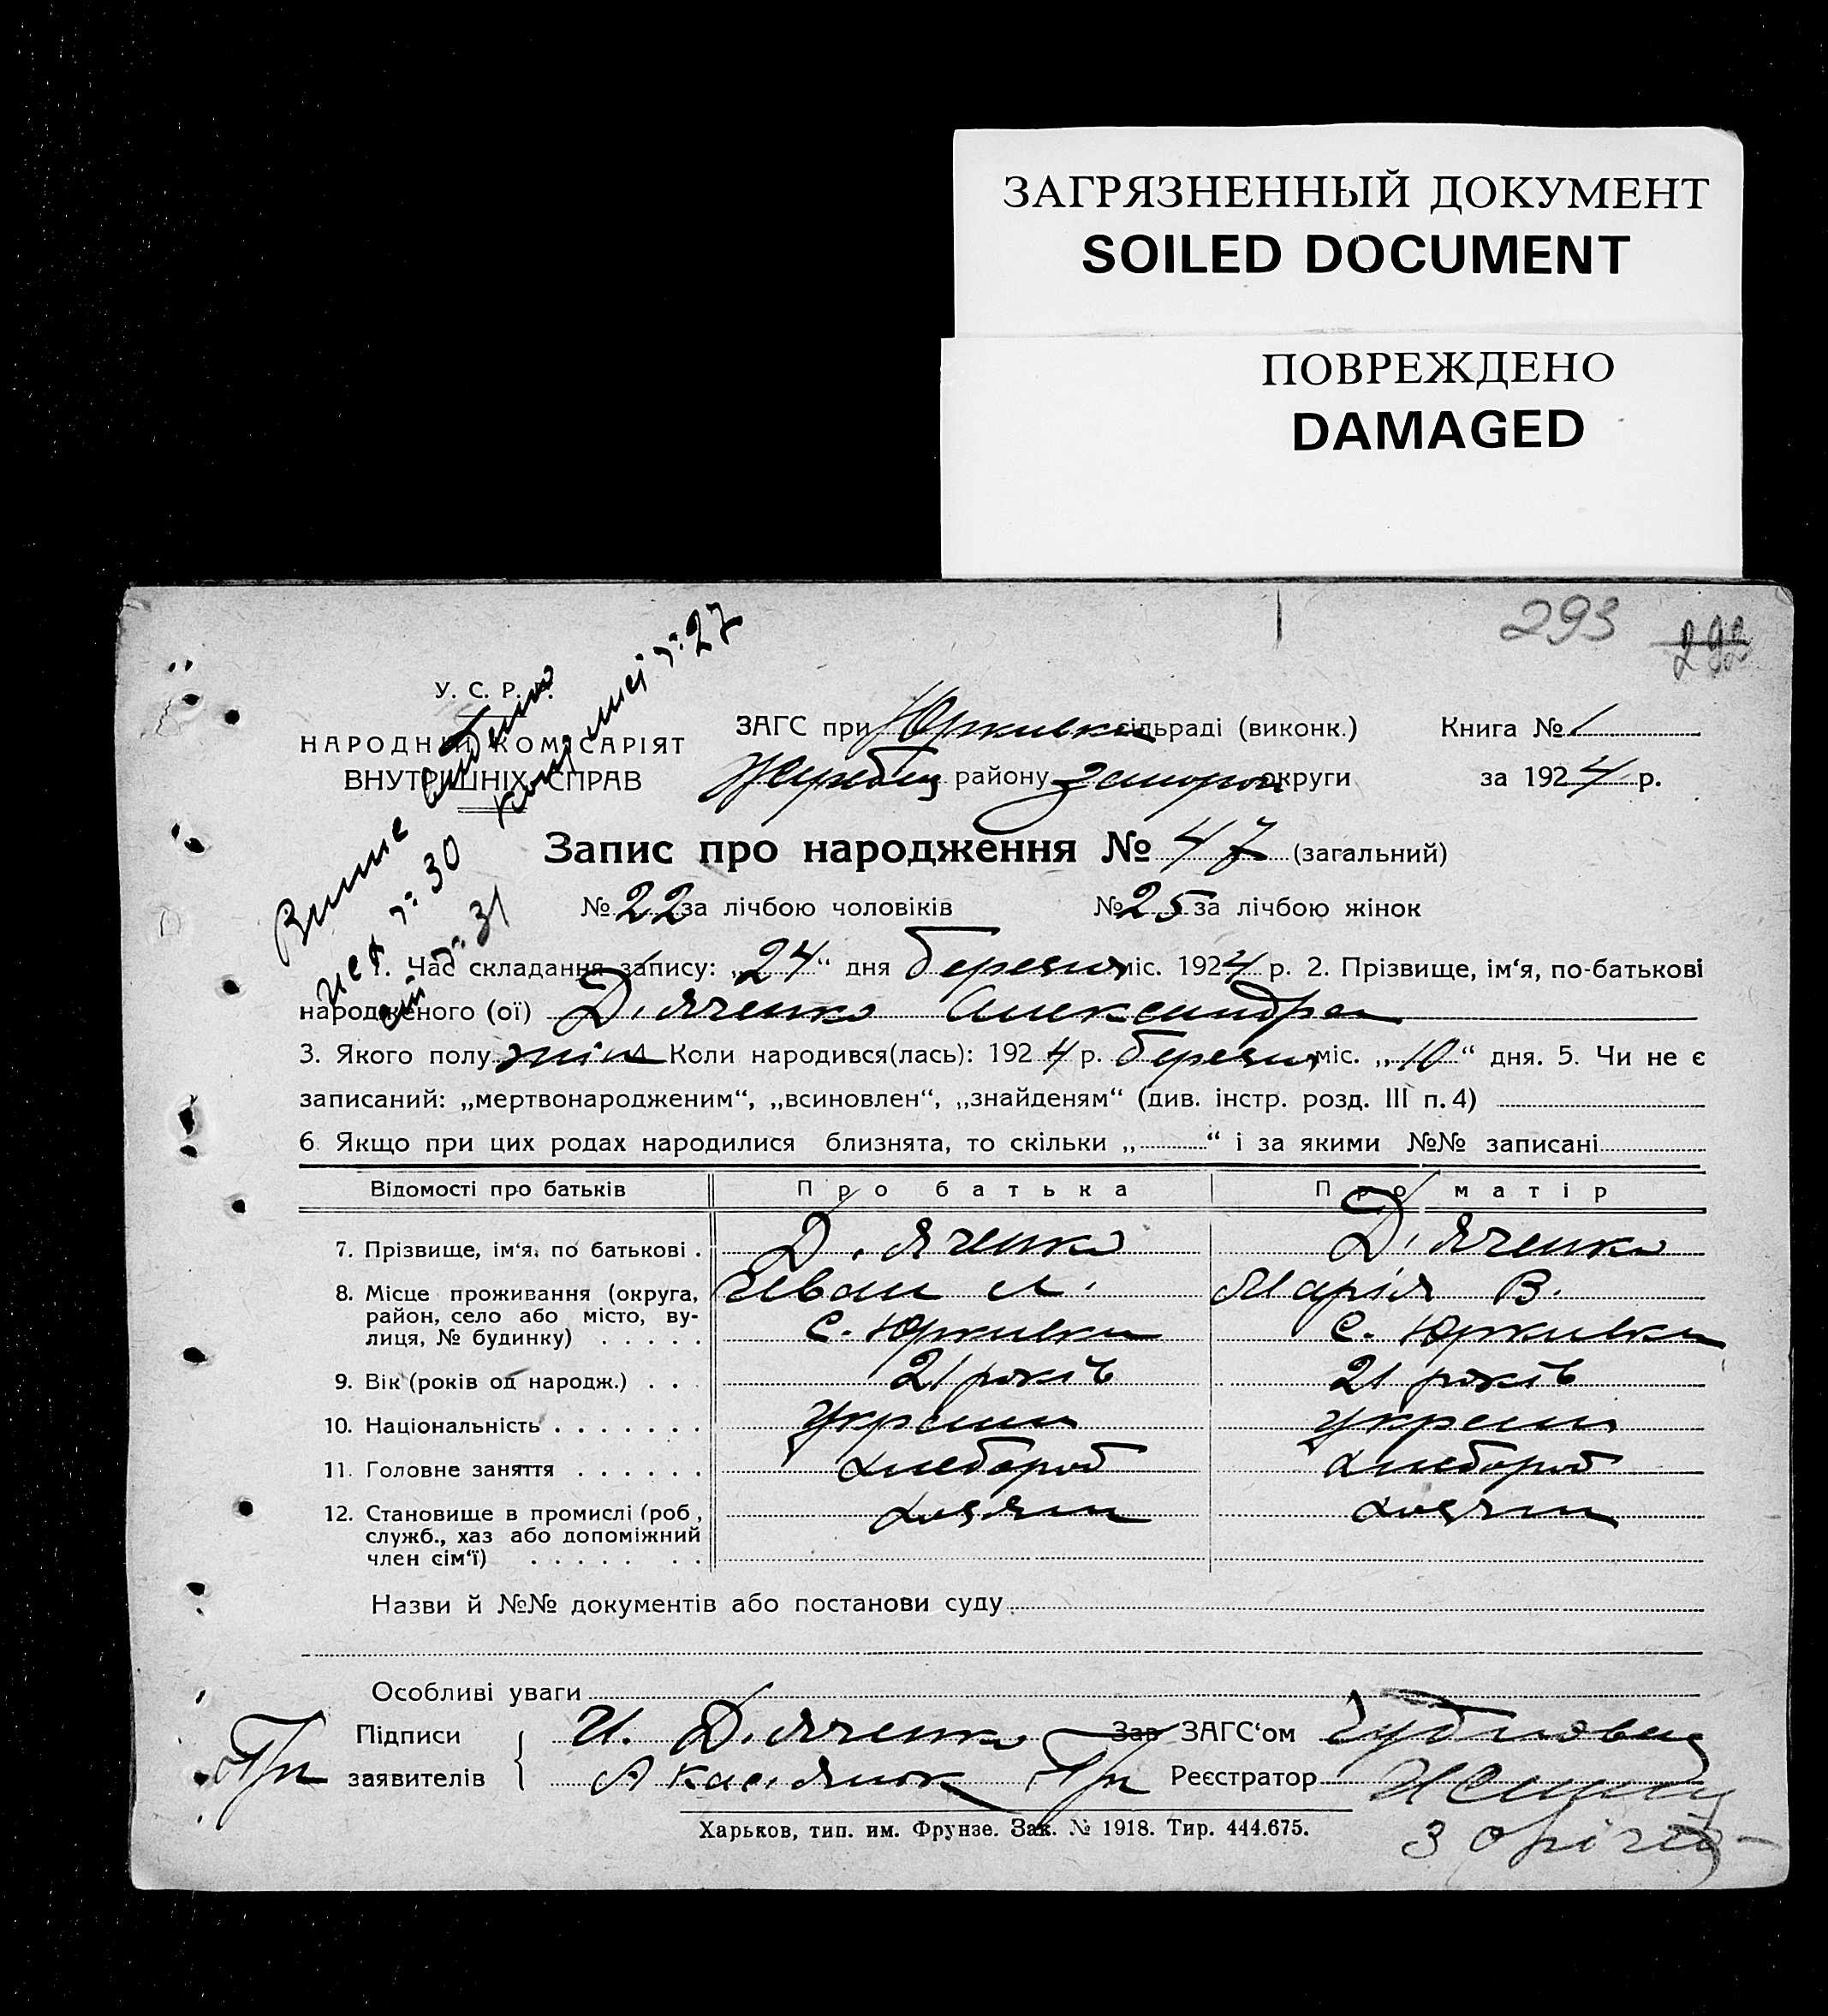 ЗАГРЯЗНЕННЫЙ ДОКУМЕНТ
SOILED DOCUMENT
ПОВРЕЖДЕНО
DAMAGED
293 292
У. С. Р. Р.
НАРОДНІЙ КОМІСАРІЯТ
ВНУТРІШНІХ СПРАВ
Видано
№ 30
№ 31
№ 27
ЗАГС при Юркивка сільраді (виконк.) Книга № 1
Жеребец району Запорож округи за 1924 р.
Запис про народження № 47 (загальний)
№ 22 за лічбою чоловіків № 25 за лічбою жінок
1. Час складання запису: „24“ дня березня міс. 1924 р. 2. Прізвище, ім‘я, по-батькові
народженого (ої) Д'яченко Александра
3. Якого полу жін 4 Коли народився(лась): 1924 р. березня міс. „10“ дня. 5. Чи не є
записаний: „мертвонародженим“, „всиновлен“, „знайденям“ (див. інстр. розд. III п. 4)
6. Якщо при цих родах народилися близнята, то скільки „ “ і за якими №№ записані
Відомості про батьків Про батька Про матір
7. Прізвище, ім‘я, по батькові . Д'яченко Д'яченко
Иван Марія В.
8. Місце проживання (округа,
район, село або місто, ву-
лиця, № будинку) . . . . . с. Юркивка с. Юркивка
9. Вік (років од народж.) . . . 21 років 21 років
10. Національність . . . . . . . Украин Украин
11. Головне заняття . . . . . . хлебороб хлебороб
12. Становище в промислі (роб., хозяин хозяин
служб., хаз або допоміжний
член сім‘ї) . . . . . . .
Назви й №№ документів або постанови суду
Особливі уваги
Підписи И. Д'яченко Зав ЗАГС‘ом
заявителів А Касьянюк Реєстратор
Харьков, тип. им. Фрунзе. Зак. № 1918. Тир. 444.675.